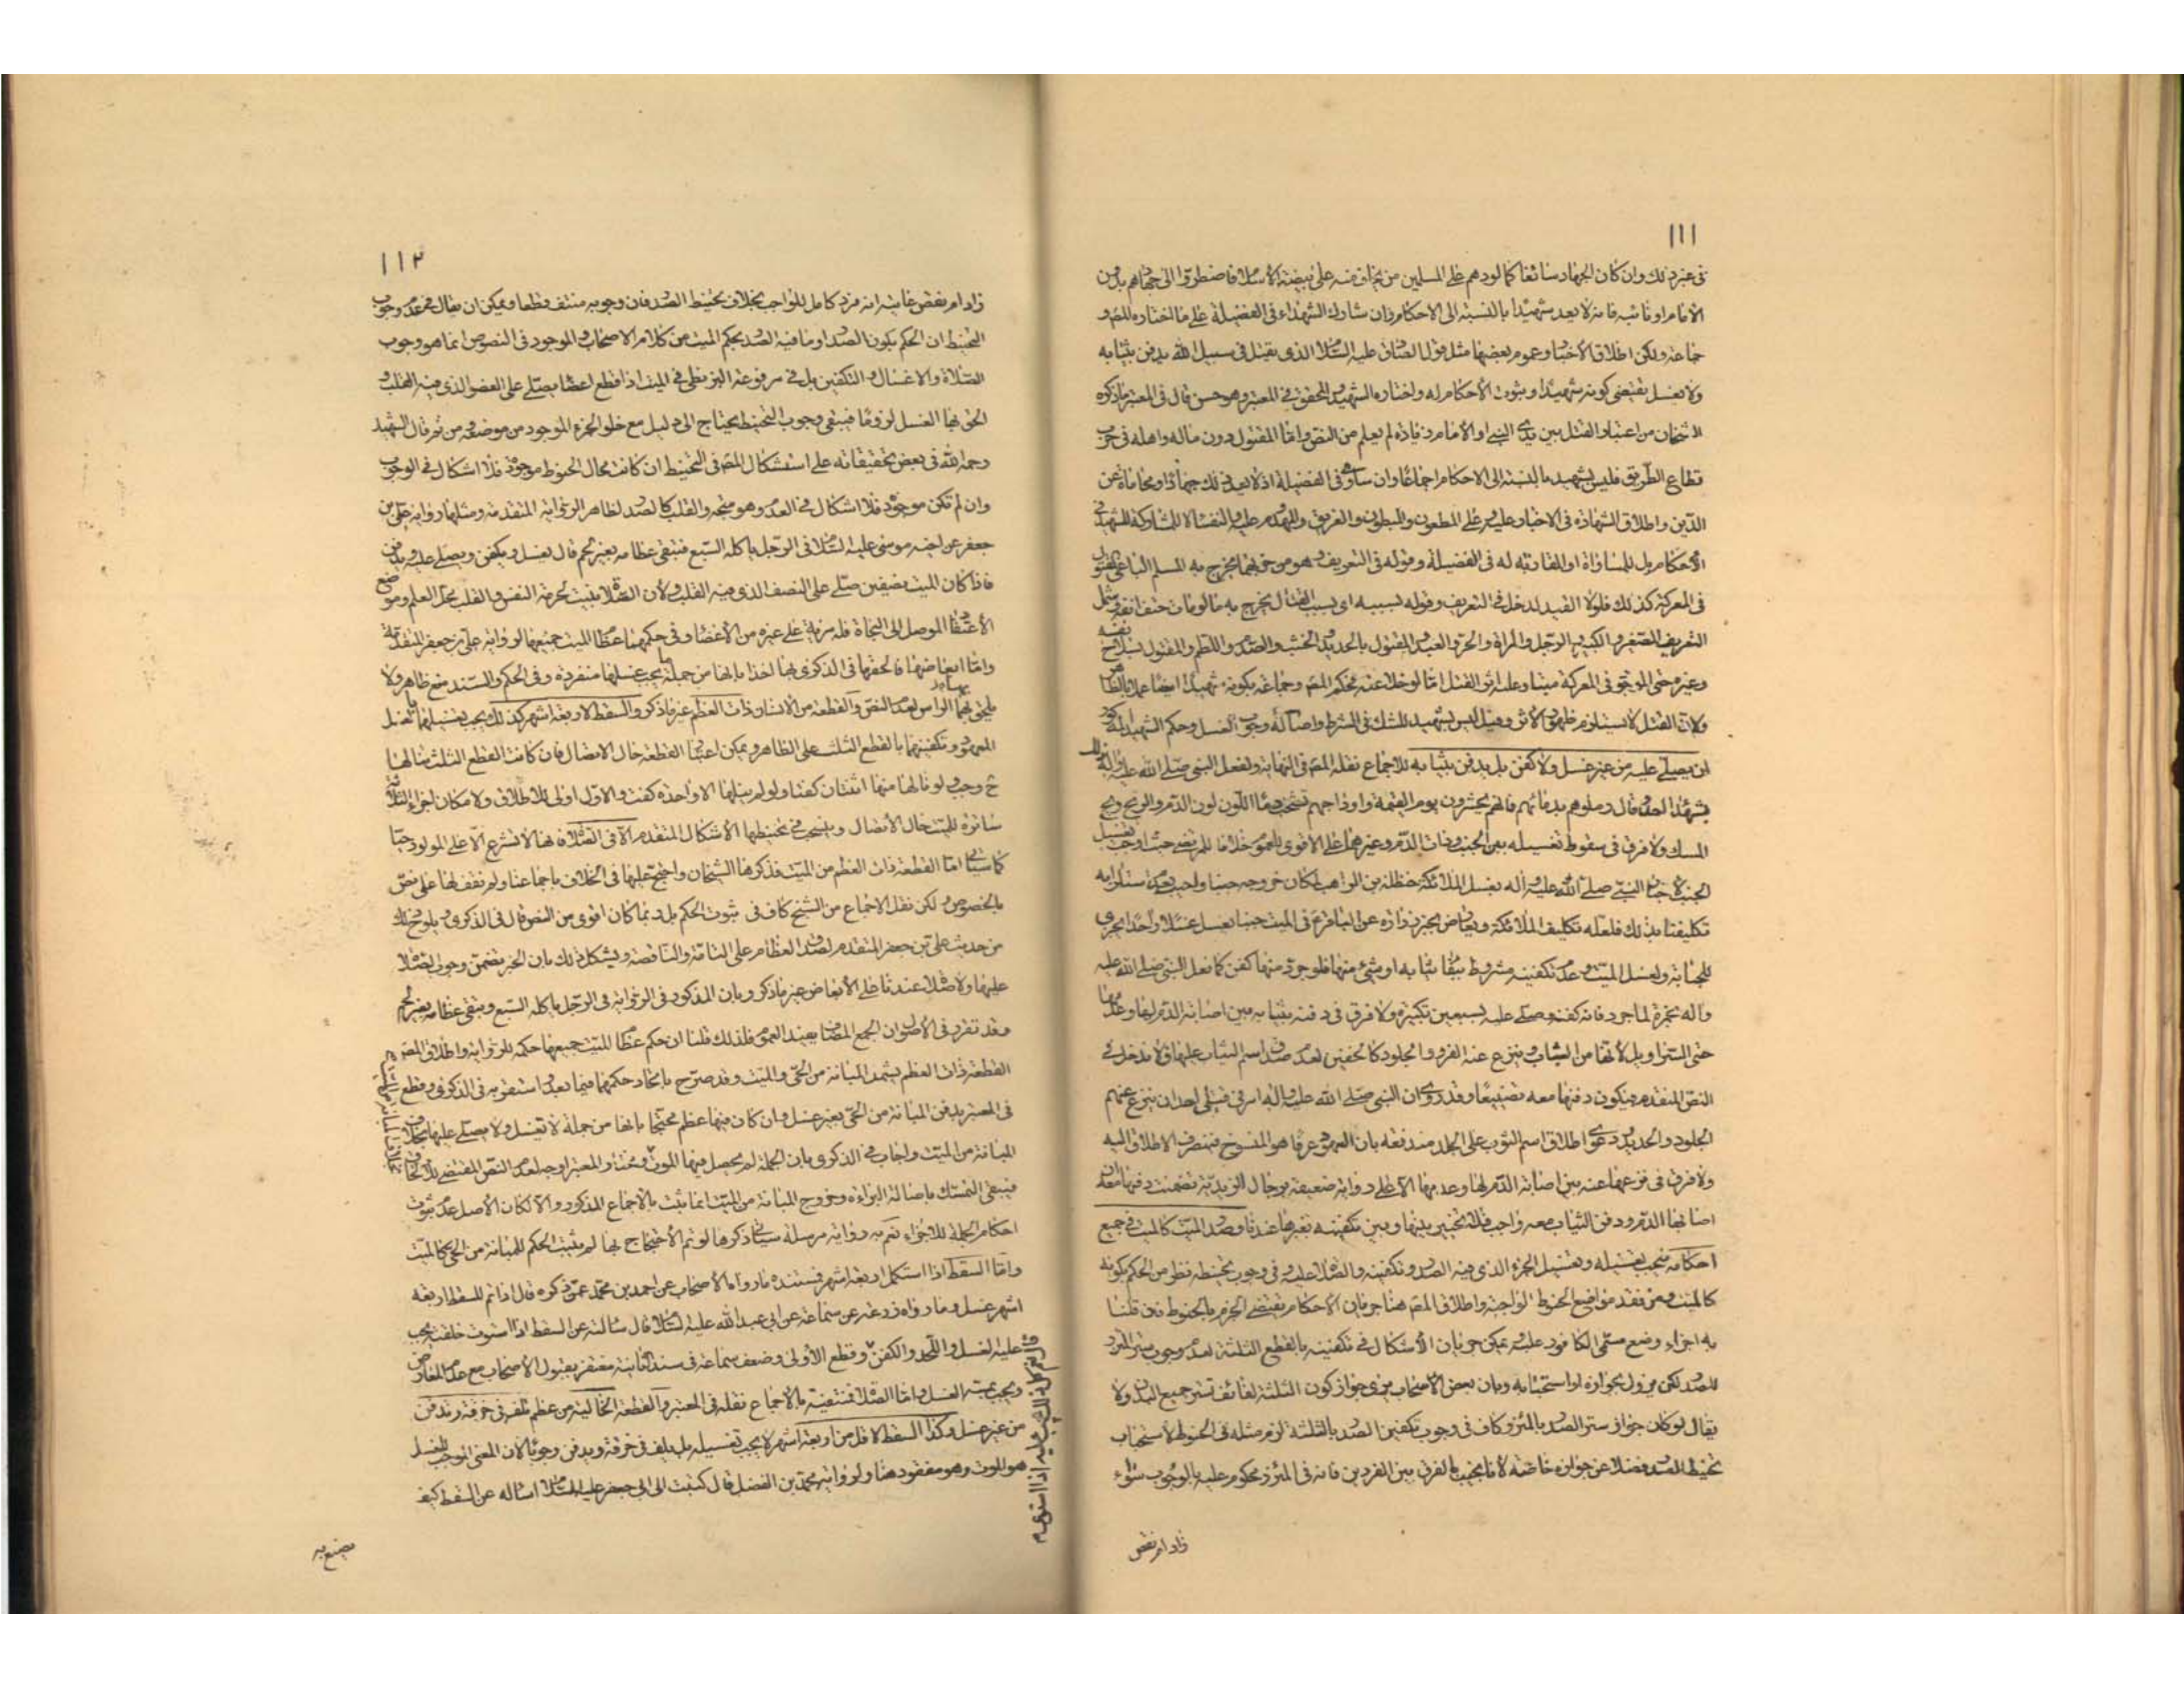 ١١١
في غير ذلك وان كان الجهاد سائغا كما لو دهم على المسلمين من يخاف منه على بيضة الاسلام فاضطروا الى جهادهم بدون
الامام او نائبه فانه لا يعد شهيدا بالنسبة الى الاحكام وان شارك الشهداء في الفضيلة على ما اختاره المص و
جماعة ولكن اطلاق الاخبار وعموم بعضها مثل قول الصادق عليه السلام الذي يقتل في سبيل الله يدفن بثيابه
ولا يغسل يقتضي كونه شهيدا وثبوت الاحكام له واختاره الشهيد والمحقق في المعتبر وهو حسن قال في المعتبر ما ذكره
الشيخان من اعتبار القتل بين يدي النبي او الامام زيادة لم يعلم من النص واما المقتول دون ماله واهله في حرب
قطاع الطريق فليس بشهيد بالنسبة الى الاحكام اجماعا وان ساوى في الفضيلة اذ لا يعد ذلك جهادا ومحاماة عن
الدين واطلاق الشهادة في الاخبار عليه وعلى المطعون والمبطون والغريق والمهدوم عليه والنفساء لا للمشاركة للشهيد في
الاحكام بل للمساواة او المقاربة له في الفضيلة وقوله في التعريف وهو من حزبهما يخرج به المسلم الباغي المقتول
في المعركة كذلك فلولا القيد لدخل في التعريف وقوله بسببه اي بسبب القتال يخرج به ما لو مات حتف انفه ويشمل
التعريف الصغير والكبير والرجل والمراة والحر والعبد والمقتول بالحديد والخشب والصدم واللطم والمقتول بسلاح نفسه
وغيره حتى الموجود في المعركة ميتا وعليه اثر القتل اما لو خلا عنه فحكم المص وجماعة بكونه شهيدا ايضا عملا بالظاهر
ولان القتل لا يستلزم ظهور الاثر وقيل ليس بشهيد للشك في الشرط واصالة وجوب الغسل وحكم الشهيد المذكور
ان يصلى عليه من غير غسل ولا كفن بل يدفن بثيابه للاجماع نقله المص في النهاية ولفعل النبي صلى الله عليه واله ذلك
بشهداء احد وقال زملوهم بدمائهم فانهم يحشرون يوم القيمة واوداجهم تشخب دما اللون لون الدم والريح ريح
المسك ولا فرق في سقوط تغسيله بين الجنب وذات الدم وغيرهما على الاقوى للعموم خلافا للمرتضى حيث اوجب تغسيل
الجنب لاخبار النبي صلى الله عليه واله بغسل الملائكة حنظلة بن الراهب لمكان خروجه جنبا واجيب بعدم استلزامه
تكليفنا بذلك فلعله تكليف الملائكة ويعارض بخبر زرارة عن الباقر ع في الميت جنبا يغسل غسلا واحدا يجزي
للجنابة ولغسل الميت وعدم تكفينه مشروط ببقاء ثيابه او شيء منها فلو جرد منها كفن كما فعل النبي صلى الله عليه
واله بحمزة لما جرد فانه كفنه وصلى عليه بسبعين تكبيرة ولا فرق في دفنه بثيابه بين اصابة الدم لها وعدمها
حتى السراويل لانها من الثياب وينزع عنه الفرو والجلود كالخفين لعدم صدق اسم الثياب عليها فلا يدخل في
النص المتقدم فيكون دفنها معه تضييعا وقد روي ان النبي صلى الله عليه واله امر في قتلى احد ان ينزع عنهم
الجلود والحديد ودعوى اطلاق اسم الثوب على الجلد مندفعة بان المعهود عرفا هو المنسوج فينصرف الاطلاق اليه
ولا فرق في نزعهما عنه بين اصابة الدم لها وعدمها الا على رواية ضعيفة برجال الزيدية تضمنت دفنهما معه ان
اصابها الدم ودفن الثياب معه واجب فلا تخيير بينها وبين تكفينه بغيرها عندنا وصدر الميت كالميت في جميع
احكامه فيجب تغسيله وتغسيل الجزء الذي فيه الصدر وتكفينه والصلاة عليه وفي وجوب تحنيطه نظر من الحكم بكونه
كالميت ومن فقد مواضع الحنوط الواجبة واطلاق المص هنا جريان الاحكام يقتضي الجزم بالحنوط فان قلنا
به اجزاء وضع مسمى الكافور عليه ويمكن جريان الاشكال في تكفينه بالقطع الثلثة لعدم وجوب ستر المئزر
للصدر لكن من ول بجوازه او استحبابه وبان بعض الاصحاب يرى جواز كون الثلثة لفائف تستر جميع البدن ولا
يقال لو كان جواز ستر الصدر بالمئزر كاف في وجوب تكفين الصدر بالثلثة لزم مثله في الحنوط لاستحباب
تحنيط الصدر فضلا عن جوازه خاصة لانا نجيب بالفرق بين الفردين فانه في المئزر محكوم عليه بالوجوب سواء
زاد ام نقص
١١٢
زاد ام نقص غايته انه فرد كامل للواجب بخلاف تحنيط الصدر فان وجوبه منتف قطعا ويمكن ان يقال في عدم وجوب
التحنيط ان الحكم بكون الصدر او ما فيه الصدر بحكم الميت من كلام الاصحاب والموجود في النصوص انما هو وجوب
الصلاة والاغتسال والتكفين بل في مرفوعة البزنطي في الميت اذا قطع اعضاء يصلى على العضو الذي فيه القلب و
الحق بها الغسل لزوما فيبقى وجوب التحنيط يحتاج الى دليل مع خلو الجزء الموجود من موضعه ومن ثم قال الشهيد
رحمه الله في بعض تحقيقاته على استشكال المص في التحنيط ان كانت محال الحنوط موجودة فلا اشكال في الوجوب
وان لم تكن موجودة فلا اشكال في العدم وهو متجه والقلب كالصدر لظاهر الرواية المتقدمة ومثلها رواية علي بن
جعفر عن اخيه موسى عليه السلام في الرجل ياكله السبع فتبقى عظامه بغير لحم قال يغسل ويكفن ويصلى عليه ويدفن
فاذا كان الميت نصفين صلى على النصف الذي فيه القلب ولان الصلاة ثبتت لحرمة النفس والقلب محل العلم وموضع
الاعتقاد الموصل الى النجاة فله مزية على غيره من الاعضاء وفي حكمهما عظام الميت جميعها لرواية علي بن جعفر المتقدمة
واما ابعاضها فالحقها في الذكرى بها اخذا بانها من جملة يجب غسلها منفردة وفي الحكم والسند منع ظاهر ولا
يلحق بهما الراس لعدم النص والقطعة من الانسان ذات العظم غير ما ذكر والسقط لاربعة اشهر كذلك يجب تغسيلهما الغسل
المعهود وتكفينهما بالقطع الثلث على الظاهر ويمكن اعتبار القطعة حال الاتصال فان كانت القطع الثلث تنالها
ح وجب ولو نالها منها اثنتان كفتا ولو لم ينلها الا واحدة كفت والاول اولى للاطلاق ولامكان اجزاء الثلاثة
ساترة للميت حال الاتصال وينسحب في تحنيطها الاشكال المتقدم الا في الصلاة فانها لا تشرع الا على المولود حيا
كما سياتي اما القطعة ذات العظم من الميت فذكرها الشيخان واحتج عليها في الخلاف باجماعنا ولم نقف لها على نص
بالخصوص ولكن نقل الاجماع من الشيخ كاف في ثبوت الحكم بل ربما كان اقوى من النص قال في الذكرى ويلوح ذلك
من حديث علي بن جعفر المتقدم لصدق العظام على التامة والناقصة ويشكل ذلك بان الخبر مضمن وجوب الصلاة
عليها ولا صلاة عندنا على الابعاض غير ما ذكر وبان المذكور في الرواية في الرجل ياكله السبع وتبقى عظامه بغير لحم
وقد تقرر في الاصول ان الجمع المضاف يفيد العموم فلذلك قلنا ان حكم عظام الميت جميعها حكمه للرواية واطلاق المص
القطعة ذات العظم يشمل المبانة من الحي والميت وقد صرح باتحاد حكمهما فيما بعد واستقربه في الذكرى وقطع
في المعتبر بدفن المبانة من الحي بغير غسل وان كان فيها عظم محتجا بانها من جملة لا تغسل ولا يصلى عليها بخلاف
المبانة من الميت واجاب في الذكرى بان الجملة لم يحصل فيها الموت وفي المعتبر اوجه لعدم النص المقتضي للالحاق
فينبغي التمسك باصالة البراءة وخروج المبانة من الميت انما ثبت بالاجماع المذكور والا لكان الاصل عدم ثبوت
احكام الجملة للاجزاء نعم به رواية مرسلة سياتي ذكرها لو تم الاحتجاج بها لم يثبت الحكم للمبانة من الحي كالميت
واما السقط اذا استكمل اربعة اشهر فمستنده ما رواه الاصحاب عن احمد بن محمد عمن ذكره قال اذا تم للسقط اربعة
اشهر غسل وما رواه زرعة عن سماعة عن ابي عبد الله عليه السلام قال سالته عن السقط اذا استوت خلقته يجب
عليه الغسل واللحد والكفن وقطع الاولى وضعف سماعة في سند الثانية مغتفر بقبول الاصحاب مع عدم المعارض
ويجب بمسه الغسل واما الصلاة فمنتفية بالاجماع نقله في المعتبر والقطعة الخالية من عظم تلف في خرقة وتدفن
من غير غسل وكذا السقط لاقل من اربعة اشهر لا يجب تغسيله بل يلف في خرقة ويدفن وجوبا لان المعنى الموجب للغسل
هو الموت وهو مفقود هنا ولرواية محمد بن الفضيل قال كتبت الى ابي جعفر عليه السلام اساله عن السقط كيف
قال نعم كل ذلك يجب عليه اذا استوى
يصنع به